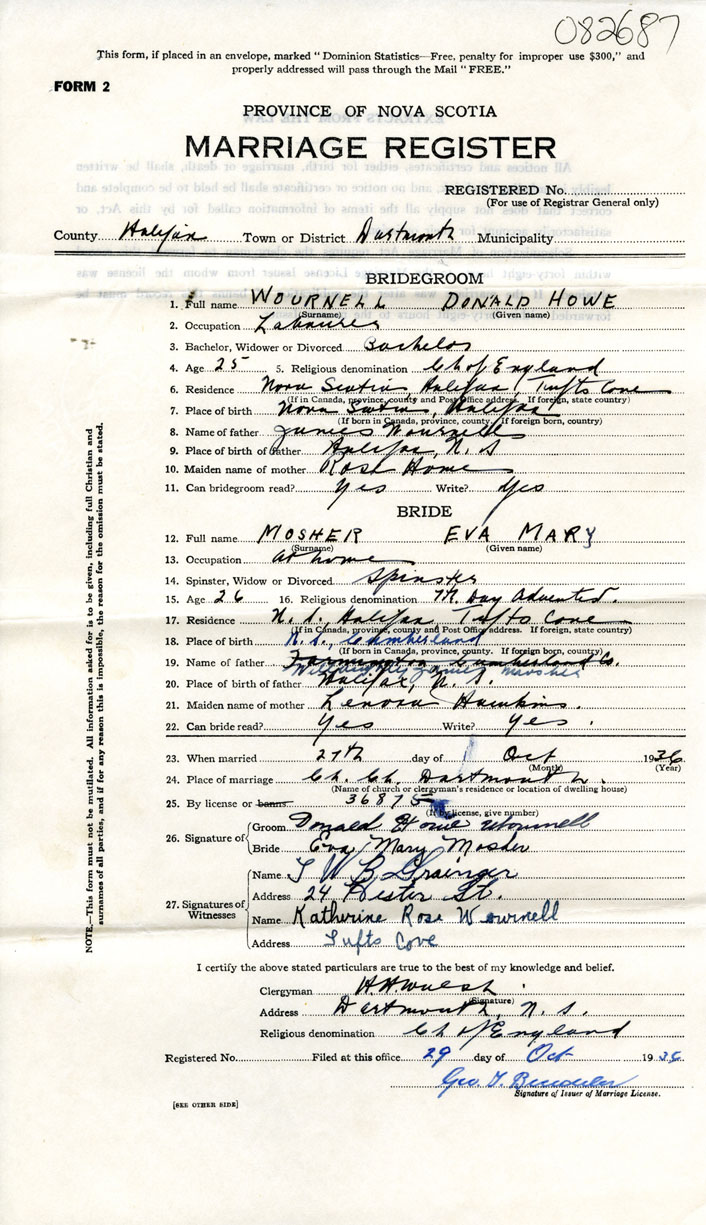 082687
This form, if placed in an envelope, marked "Dominion Statistics—Free, penalty for improper use $300," and
properly addressed will pass through the Mail "FREE."
FORM 2
PROVINCE OF NOVA SCOTIA
MARRIAGE REGISTER
REGISTERED No.
(For use of Registrar General only)
County Halifax Town or District Dartmouth Municipality
BRIDEGROOM
1. Full name WOURNELL DONALD HOWE
(Surname) (Given name)
2. Occupation Labourer
3. Bachelor, Widower or Divorced Bachelor
4. Age 25 5. Religious denomination Ch of England
6. Residence Nova Scotia, Halifax, Tufts Cove
(If in Canada, province, county and Post Office address. If foreign, state country)
7. Place of birth Nova Scotia, Halifax
(If born in Canada, province, county. If foreign born, country)
8. Name of father James Wournell
9. Place of birth of father Halifax, N.S
10. Maiden name of mother Rose Howe
11. Can bridegroom read? Yes Write? Yes
BRIDE
12. Full name MOSHER EVA MARY
(Surname) (Given name)
13. Occupation at home
14. Spinster, Widow or Divorced Spinster
15. Age 26 16. Religious denomination 7th Day Advented.
17. Residence N.S. Halifax Tufts Cove
(If in Canada, province, county and Post Office address. If foreign, state country)
18. Place of birth N.S. Cumberland
(If born in Canada, province, county. If foreign born, country)
19. Name of father Cumberland Co. Mosher
20. Place of birth of father Halifax, N.S.
21. Maiden name of mother Lenora Hawkins.
22. Can bride read? Yes Write? Yes.
23. When married 27th day of Oct 1936
(Month) (Year)
24. Place of marriage Ch. Ch. Dartmouth.
(Name of church or clergyman's residence or location of dwelling house)
25. By license or banns 36875
(If by license, give number)
26. Signature of Groom Donald Howe Wournell
Bride Eva Mary Mosher
27. Signatures of Witnesses Name T W B Grainger
Address 24 Hester St.
Name Katherine Rose Wournell
Address Tufts Cove
I certify the above stated particulars are true to the best of my knowledge and belief.
Clergyman HH Walsh.
(Signature)
Address Dartmouth, N.S.
Religious denomination Ch of England
Registered No. Filed at this office 29 day of Oct 1936
Geo. T.
Signature of Issuer of Marriage License.
[SEE OTHER SIDE]
NOTE.—This form must not be mutilated. All information asked for is to be given, including full Christian and
surnames of all parties, and if for any reason this is impossible, the reason for the omission must be stated.